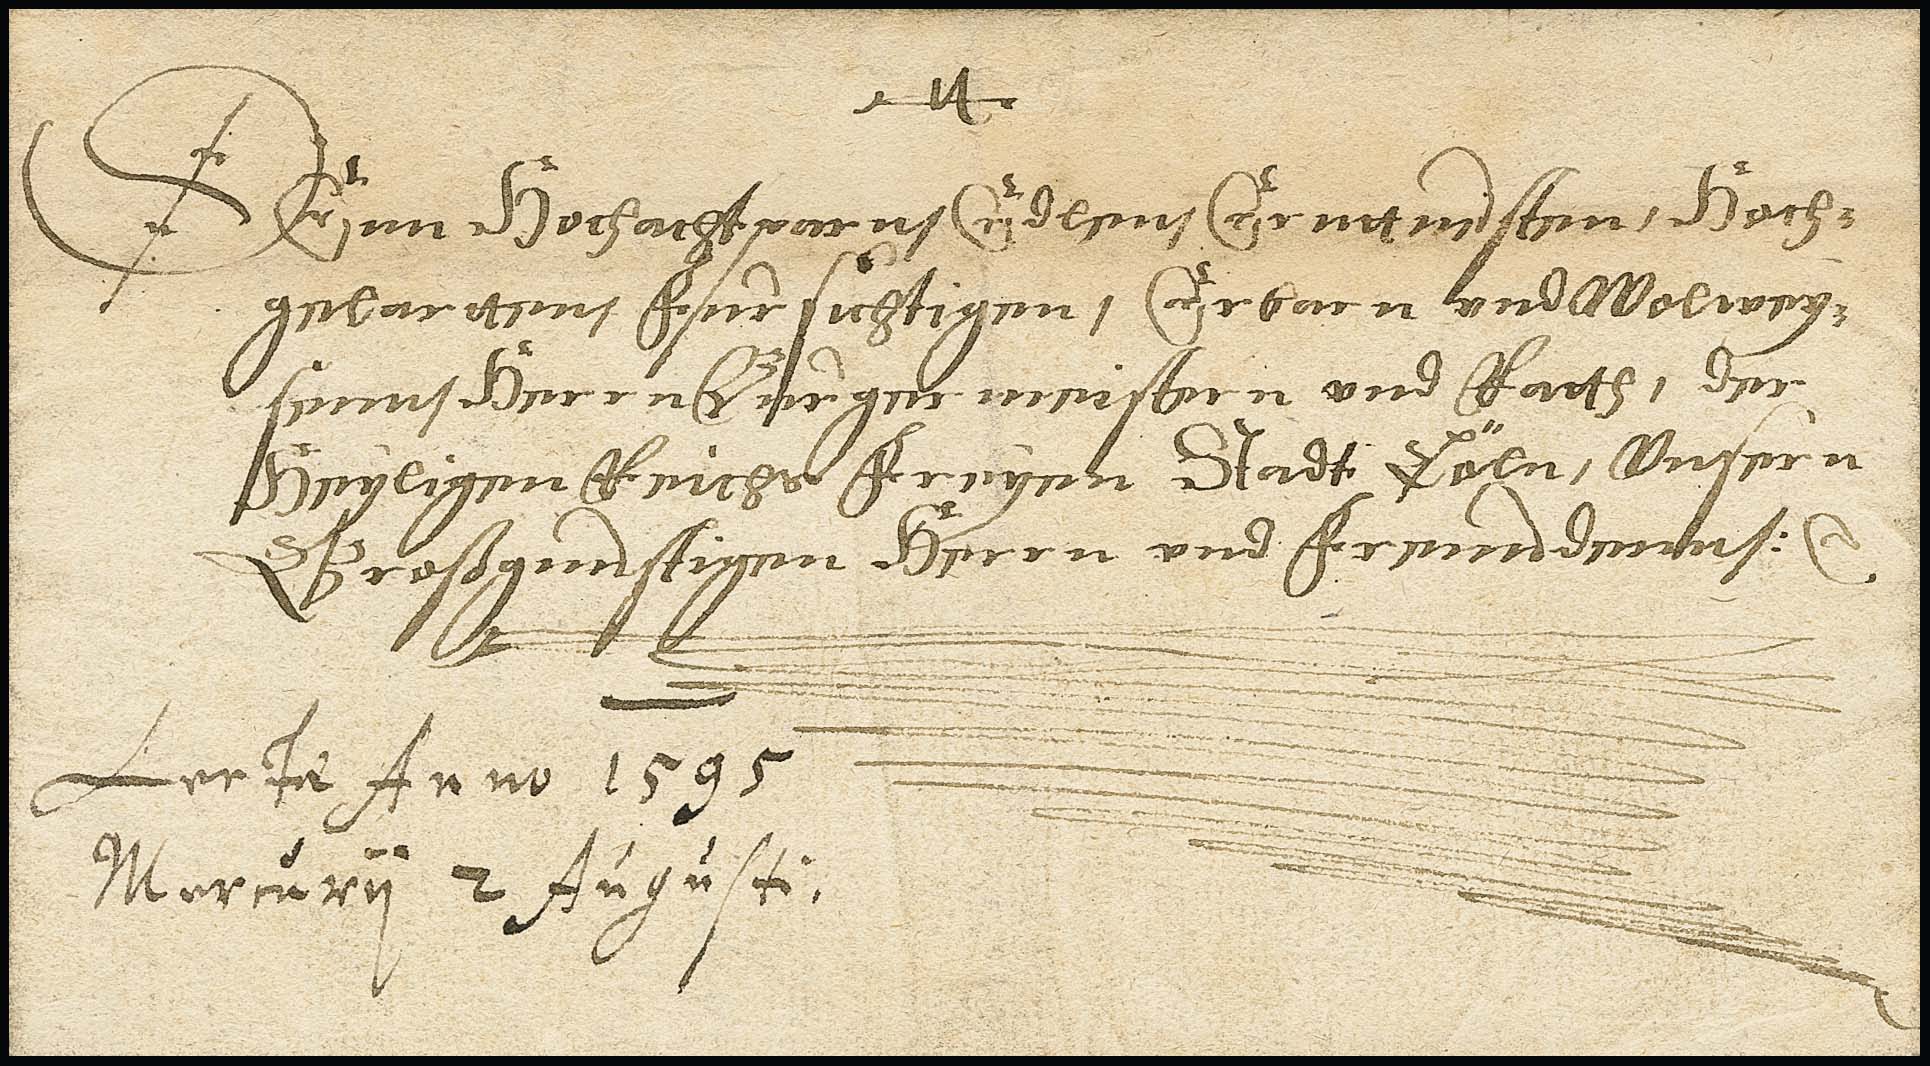 Denn Hochachtparn, Edlen, Ernuesten, Hoch-
gelartten, Fursichtigen, Erbarn vnd Wolwey-
senn, Herrn Burgermeistern vnd Rath, der
Heyligen Reichs Freyen Stadt Cöln, Vnsern
Großgunstigen Herrn vnd Freundenn:
Lecta Anno 1595
Mercurij 2 Augusti.